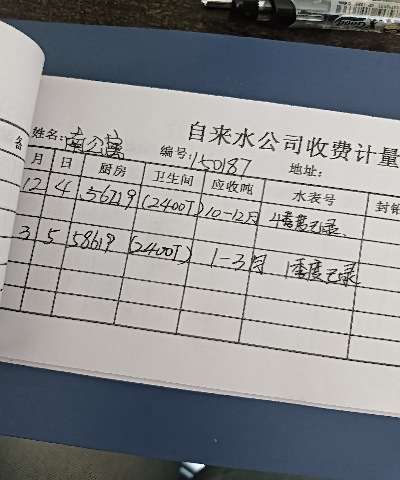 自来水公司收费计量
姓名：南公寓 编号：150187 地址：
备
月 日 厨房 卫生间 应收吨 水表号 封铅
12 4 56719 (2400T) 10-12月 4季度记录、
3 5 58619 (2400T) 1-3月 1季度记录